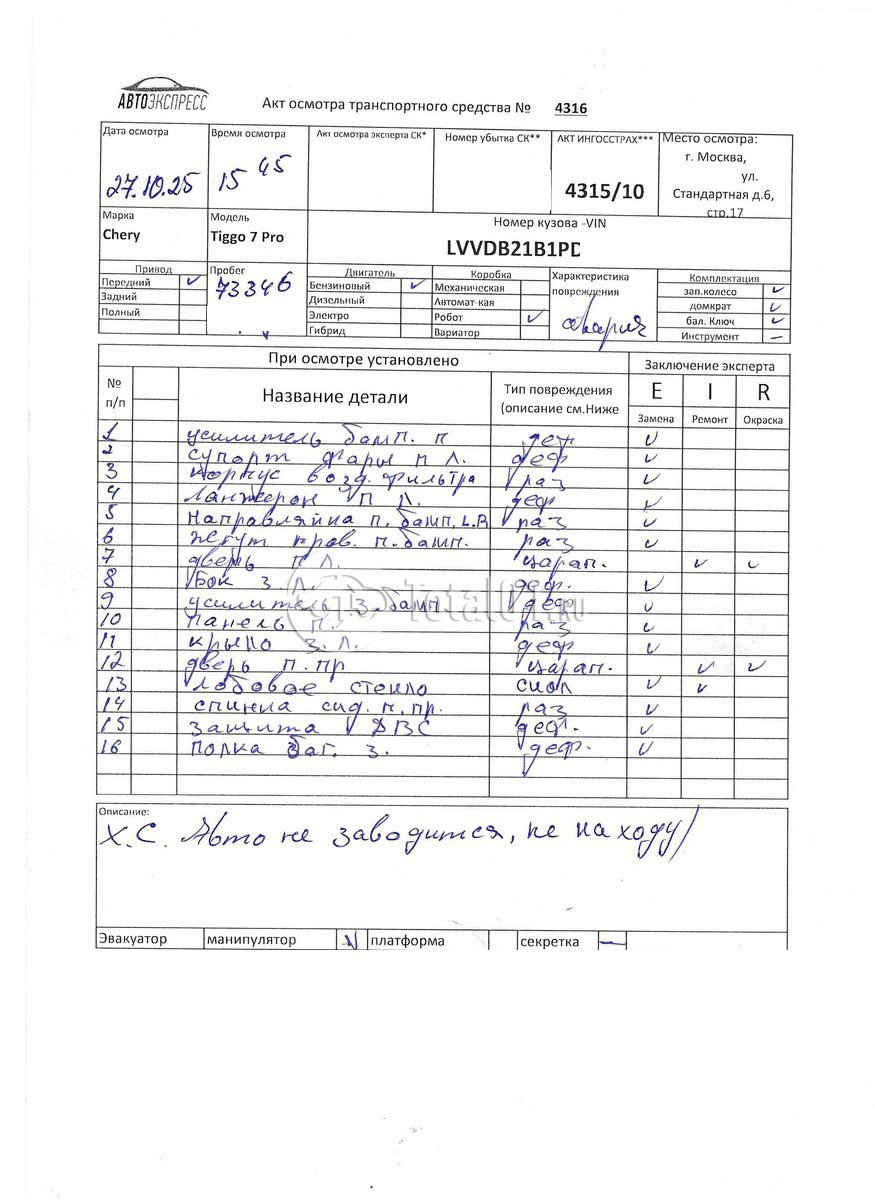 АВТОЭКСПРЕСС
Акт осмотра транспортного средства № 4316
Дата осмотра
27.10.25
Время осмотра
15 45
Акт осмотра эксперта СК*
Номер убытка СК**
АКТ ИНГОССТРАХ***
4315/10
Место осмотра:
г. Москва,
ул.
Стандартная д.6,
стр.17
Марка
Chery
Модель
Tiggo 7 Pro
Номер кузова -VIN
LVVDB21B1PD
Привод
Передний ✓
Задний
Полный
Пробег
73346
Двигатель
Бензиновый ✓
Дизельный
Электро
Гибрид
Коробка
Механическая
Автомат-кая
Робот ✓
Вариатор
Характеристика
повреждения
авария
Комплектация
зап.колесо ✓
домкрат ✓
бал. Ключ ✓
Инструмент —
При осмотре установлено
Заключение эксперта
№
п/п
Название детали
Тип повреждения
(описание см.Ниже
E I R
Замена Ремонт Окраска
1 усилитель бамп. п деф ✓
2 супорт фары п л. деф ✓
3 корпус возд. фильтра раз ✓
4 Ланжерон п л. деф ✓
5 Направляйка п. бамп. L.R раз ✓
6 жгут пров. п. бамп. раз ✓
7 дверь п л. царап. ✓ ✓
8 Бок з л. деф. ✓
9 усилитель з. бамп. деф ✓
10 панель п. раз ✓
11 крыло з. л. деф ✓
12 дверь п. пр царап. ✓ ✓
13 лобовое стекло скол ✓ ✓
14 спинка сид. п. пр. раз ✓
15 защита ДВС деф. ✓
16 полка баг. з. деф. ✓
Total01.RU
Описание:
Х.С. Авто не заводится, не на ходу/
Эвакуатор манипулятор ✓ платформа секретка —